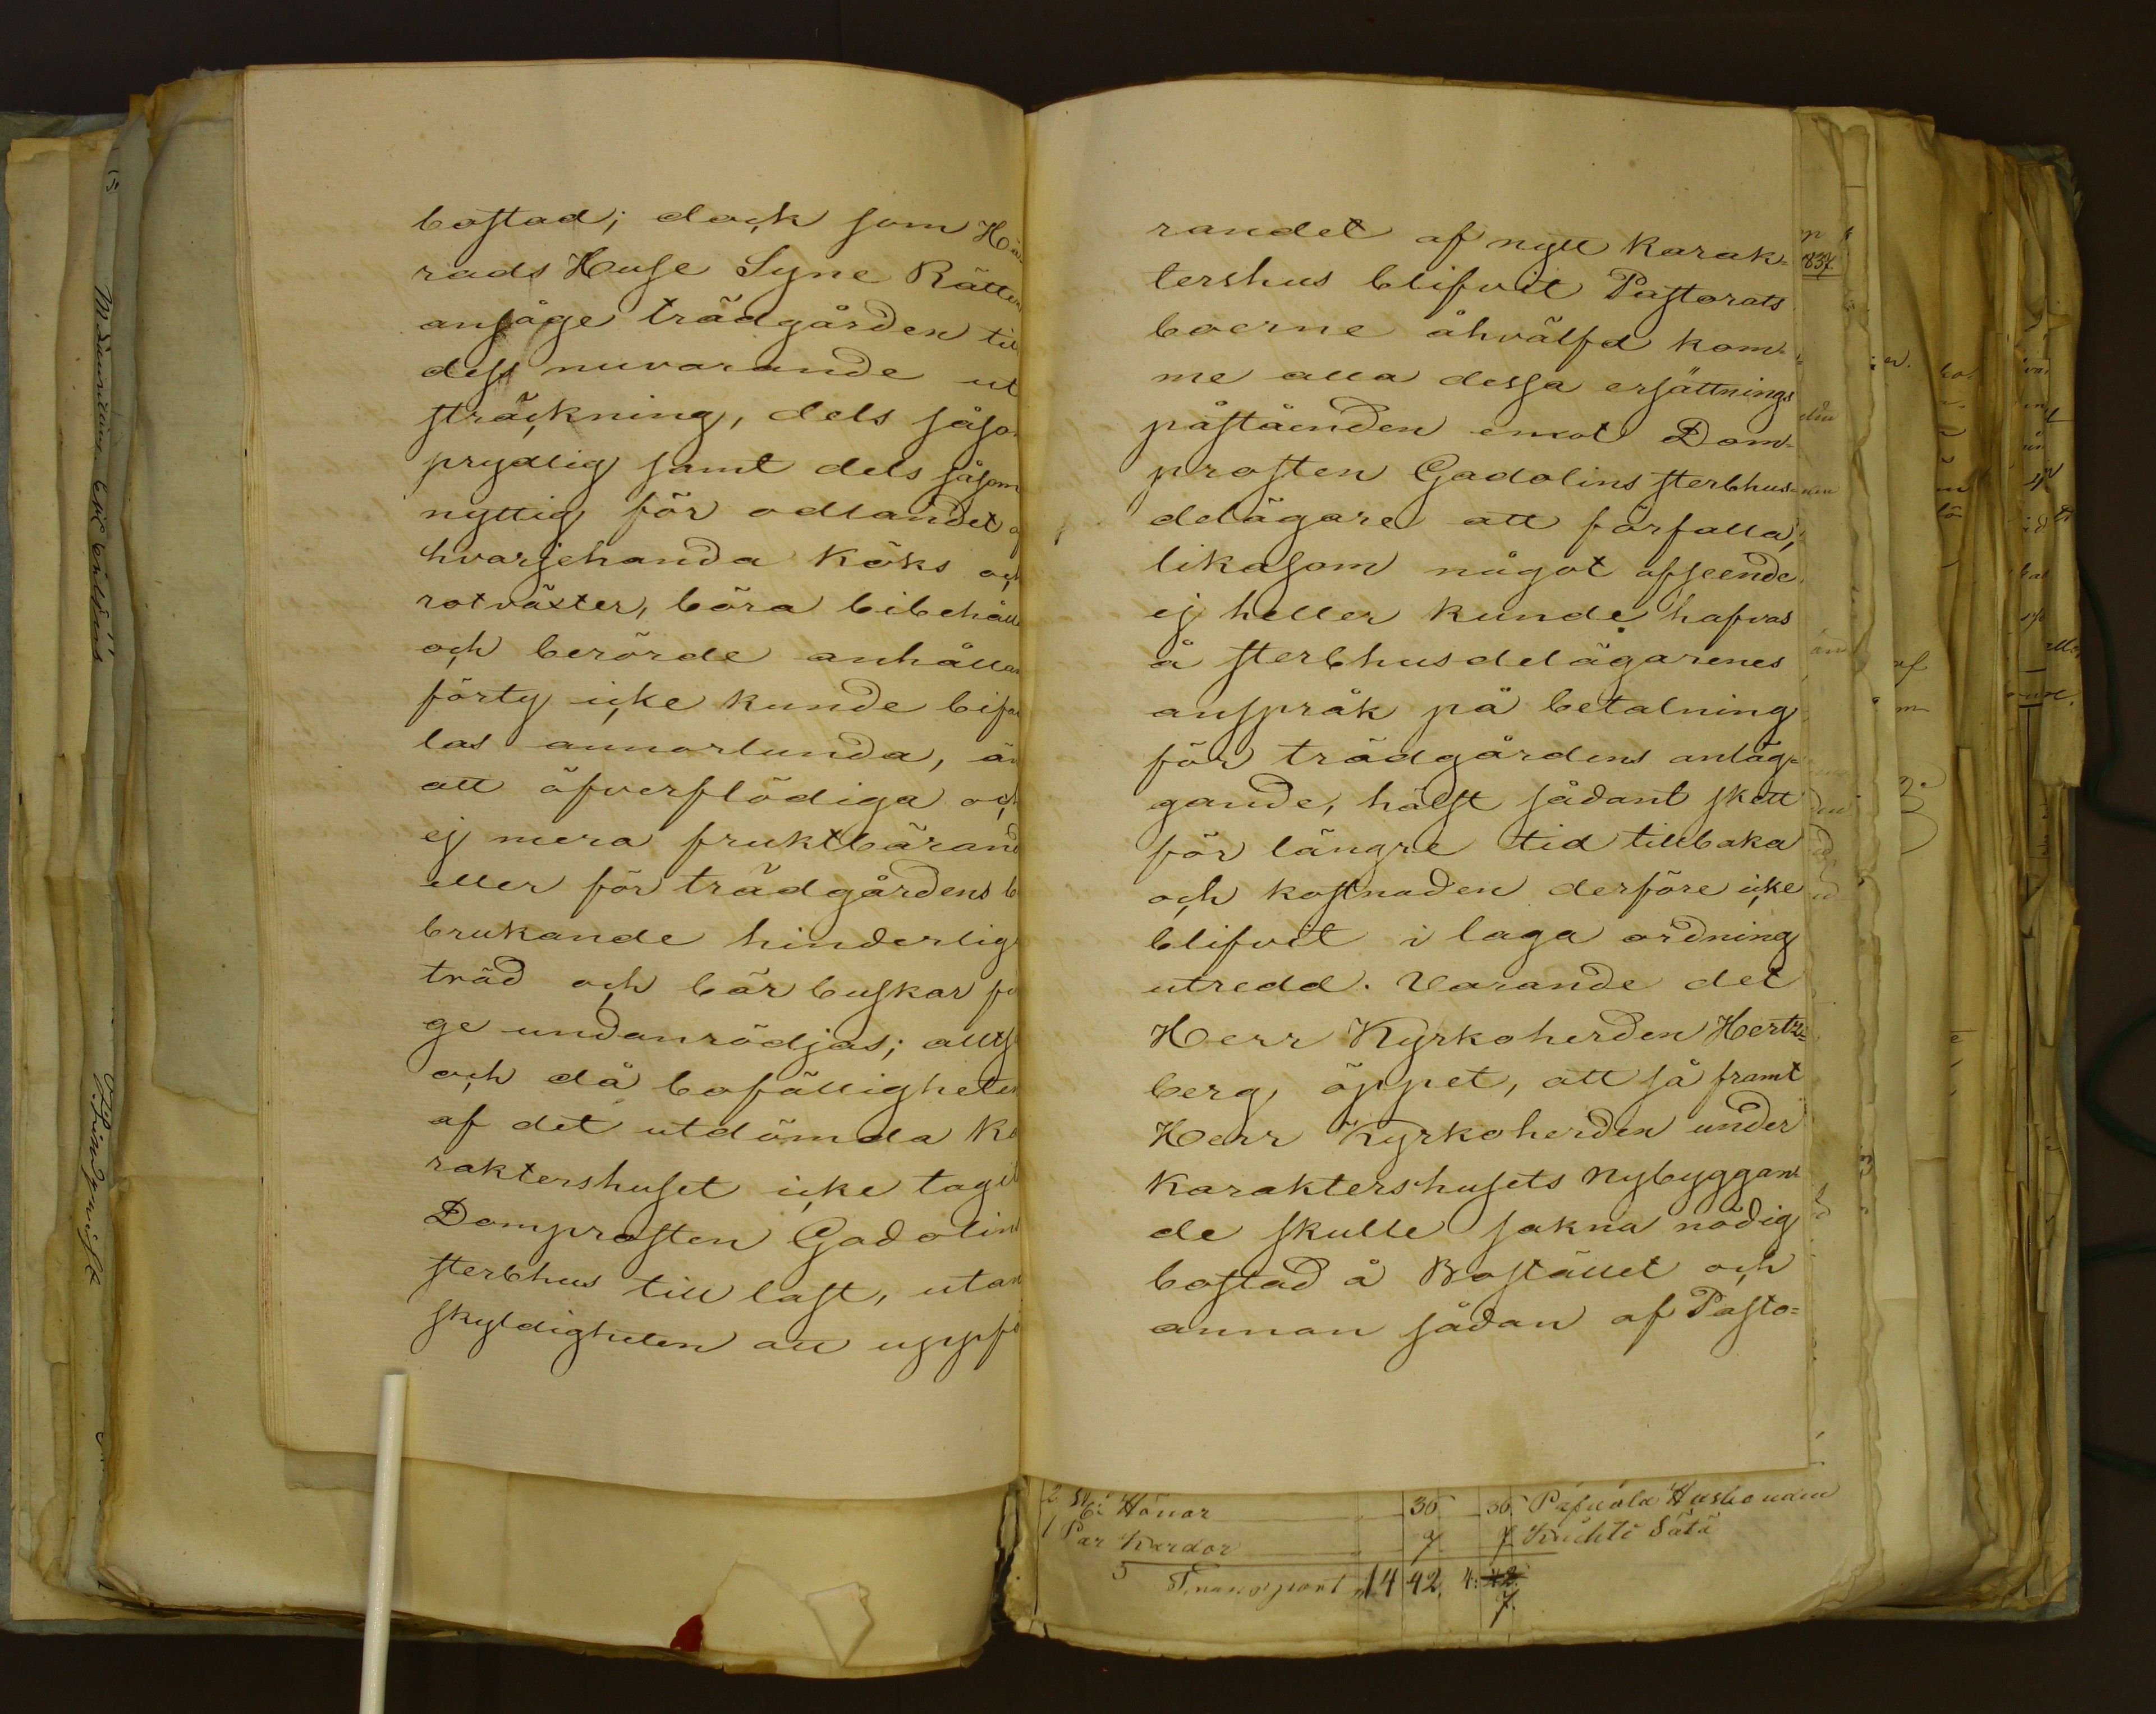 bostad; dock som Hä
rads Huse Syne Rätten
ansåge trädgården til
dess nuvarande ut
sträckning, dels såso
prydlig samt dels såsom
nyttig för odlandet a
hvarjehanda Köks och
rotväxter, böra bibehålla
och berörde anhållan
förty icke kunde bifal
las annorlunda, än
att öfverflödiga och
ej mera fruktbärand
eller för trädgårdens b
brukande hinderlig
träd och bär buskar få
ge undanrödjas; allts
och då bofälligheten
af det utdömda Ka
raktershuset icke tagit
Domprosten Gadolins
sterbhus till last, utan
skyldigheten att uppfö
randet af nytt Karak-
tershus blifvit Pastorats
boerne åhvälfd kom-
me alla dessa ersättnings
påståenden emot Dom-
prosten Gadolins sterbhus-
delägare att förfalla,
likasom något afseende
ej heller kunde hafvas
å sterbhusdelägarenes
anspråk på betalning
för trädgårdens anläg-
gande, hälst sådant skett
för längre tid tillbaka
och kostnaden derföre icke
blifvit i laga ordning
utredd. Varande det
Herr Kyrkoherden Hertz-
berg, öppet, att så framt
Herr Kyrkoherden under
Karaktershusets nybyggan-
de skulle sakna nödig
bostad å Bostället och
annan sådan af Pasto-
2 St: Hönor 36 36
1 Par Kardor 7 7
Transport 14 42. 4: 42.
7.
837